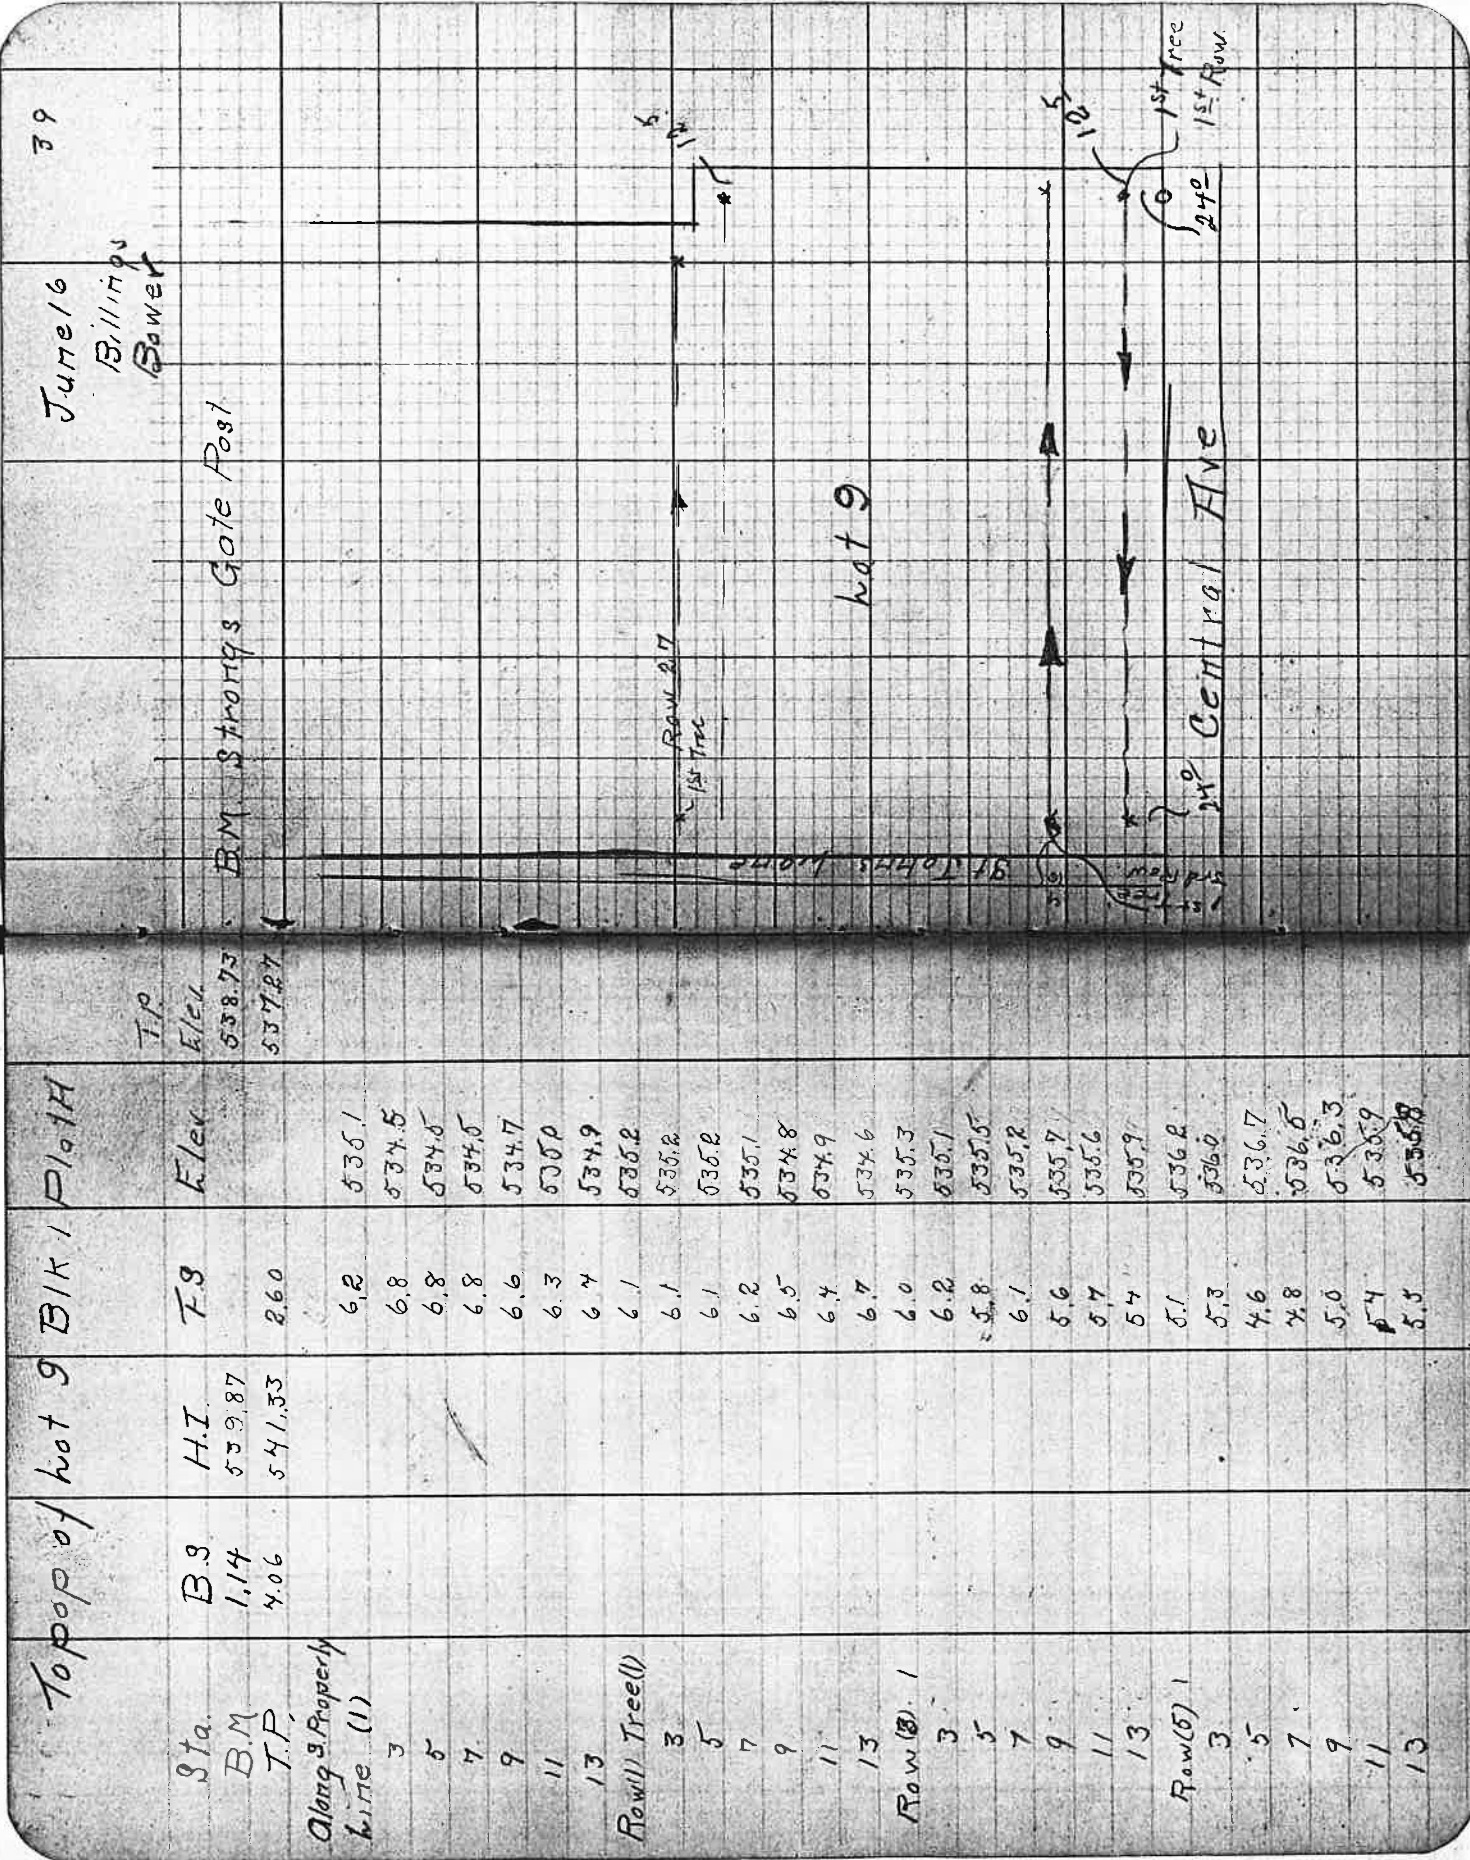 Topo of Lot 9 Blk 1 Plat A
T.P.
Sta. B.S H.I. F.S Elev Elev.
B.M. 1.14 539.87 538.73
T.P. 4.06 541.33 2.60 537.27
Along S. Property
Line (1) 6.2 535.1
3 6.8 534.5
5 6.8 534.5
7 6.8 534.5
9 6.6 534.7
11 6.3 535.0
13 6.4 534.9
Row(1) Tree(1) 6.1 535.2
3 6.1 535.2
5 6.1 535.2
7 6.2 535.1
9 6.5 534.8
11 6.4 534.9
13 6.7 534.6
Row(3) 1 6.0 535.3
3 6.2 535.1
5 5.8 535.5
7 6.1 535.2
9 5.6 535.7
11 5.7 535.6
13 5.4 535.9
Row(5) 1 5.1 536.2
3 5.3 536.0
5 4.6 536.7
7 4.8 536.5
9 5.0 536.3
11 5.4 535.9
13 5.5 535.8
June 16 39
Billings
Bower
B.M. Strongs Gate Post
12 5
Row 27
1st Tree
Lot 9
St Johns Lane
12 5
1st Tree
1st Row
24º
24º Central Ave
1st Tree
3rd Row